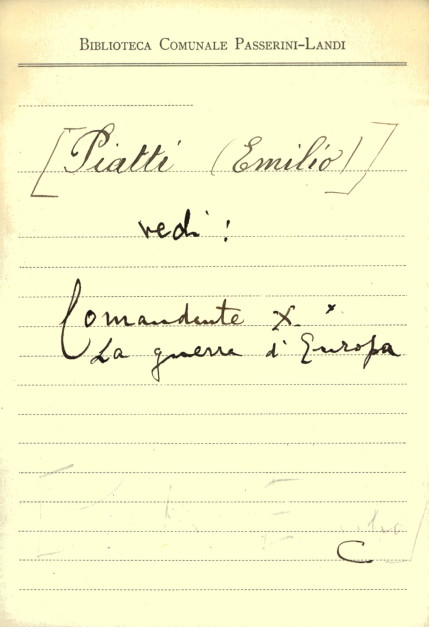 BIBLIOTECA COMUNALE PASSERINI-LANDI
[Piatti (Emilio)]
vedi:
Comandante X. *
La guerra d'Europa
C